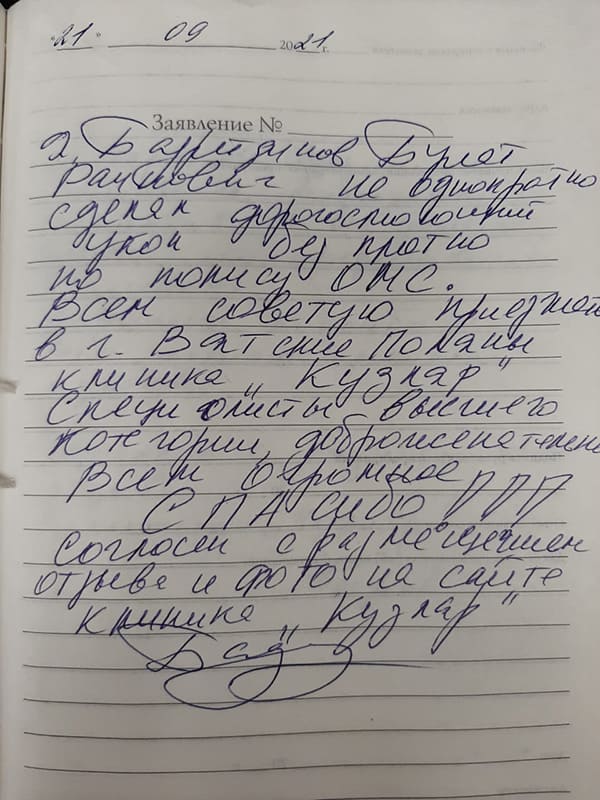 "21" 09 2021 г.
Заявление № 
Булат
не однократно
сделал дорогостоющий
укол без платно
по полису ОМС.
Всем советую приезжать
в г. Вятские Поляны
клиника „Кузляр"
Специолисты высшего
котегории, доброжелательные
Всем огромное
СПАсибо !!!
Согласен с размещением
отзыва и фото на сайте
клиника „Кузляр"